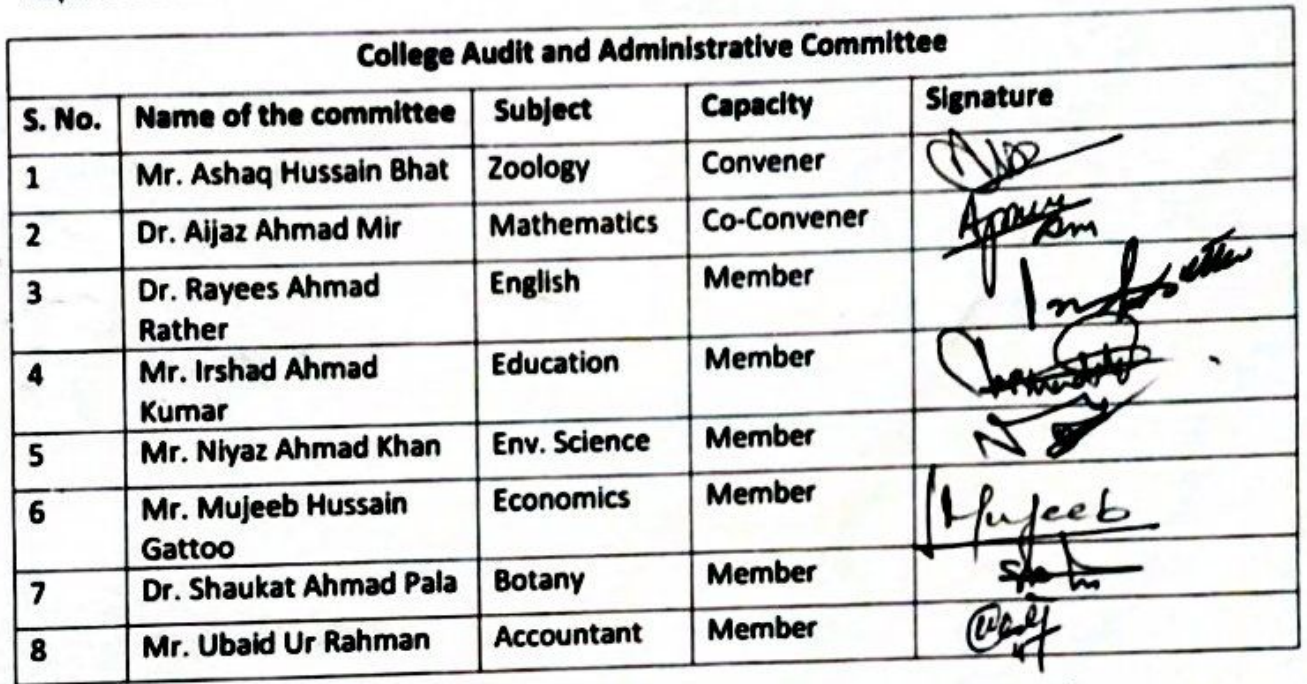 College Audit and Administrative Committee
S. No. Name of the committee Subject Capacity Signature
1 Mr. Ashaq Hussain Bhat Zoology Convener
2 Dr. Aijaz Ahmad Mir Mathematics Co-Convener
3 Dr. Rayees Ahmad Rather English Member
4 Mr. Irshad Ahmad Kumar Education Member
5 Mr. Niyaz Ahmad Khan Env. Science Member
6 Mr. Mujeeb Hussain Gattoo Economics Member Mujeeb
7 Dr. Shaukat Ahmad Pala Botany Member
8 Mr. Ubaid Ur Rahman Accountant Member